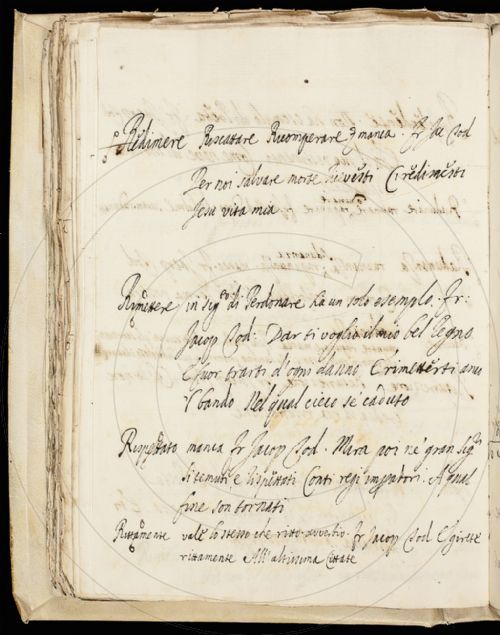 Redimere Riscattare Ricomperare manca. Fr Ja Tod
Per noi salvare morte Ci redimesti
Jesù vita mia
Rimettere in sig.to di Perdonare ha un solo esempio. Fr:
Jacop Tod: Dar ti voglio il mio bel legno
E fuor trarti d'ogni danno E rimetterti
bando Nel qual cieco se' caduto
Rispettato manca Fr Jacop Tod. Mira poi ne' gran sig.ri
si temuti e rispettati Conti regi A qual
fine son tornati
Rittamente vale lo stesso che ritto avverbio. Fr Jacop Tod E girete
rittamente All'altissima Cittate